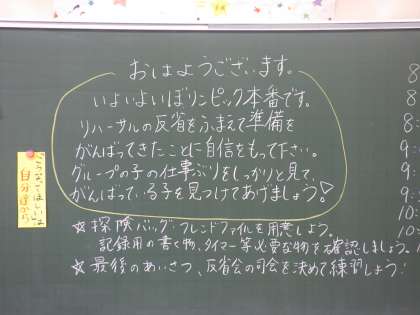 おはようございます。
いよいよいぼリンピック本番です。
リハーサルの反省をふまえて準備を
がんばってきたことに自信をもって下さい。
グループの子の仕事ぶりをしっかりと見て、
がんばっている子を見つけてあげましょう！
☆探険バッグ・フレンドファイルを用意しよう。
記録用の書く物、タイマー等必要な物を確認しましょう。
☆最後のあいさつ、反省会の司会を決めて練習しよう！
自分達から
8
8
8
9:
9:
9:
10
10